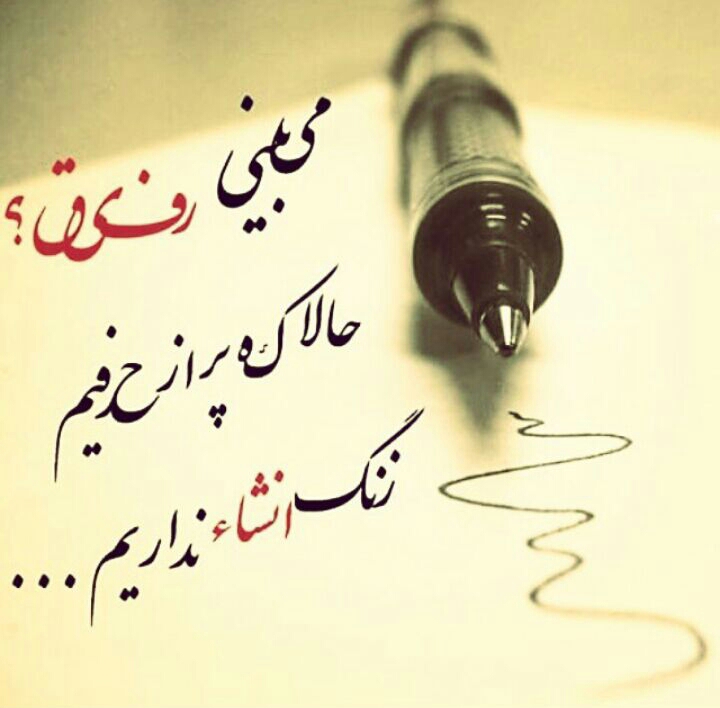 می بینی رفیق؟
حالا که پر از حرفیم
زنگ انشاء نداریم ...